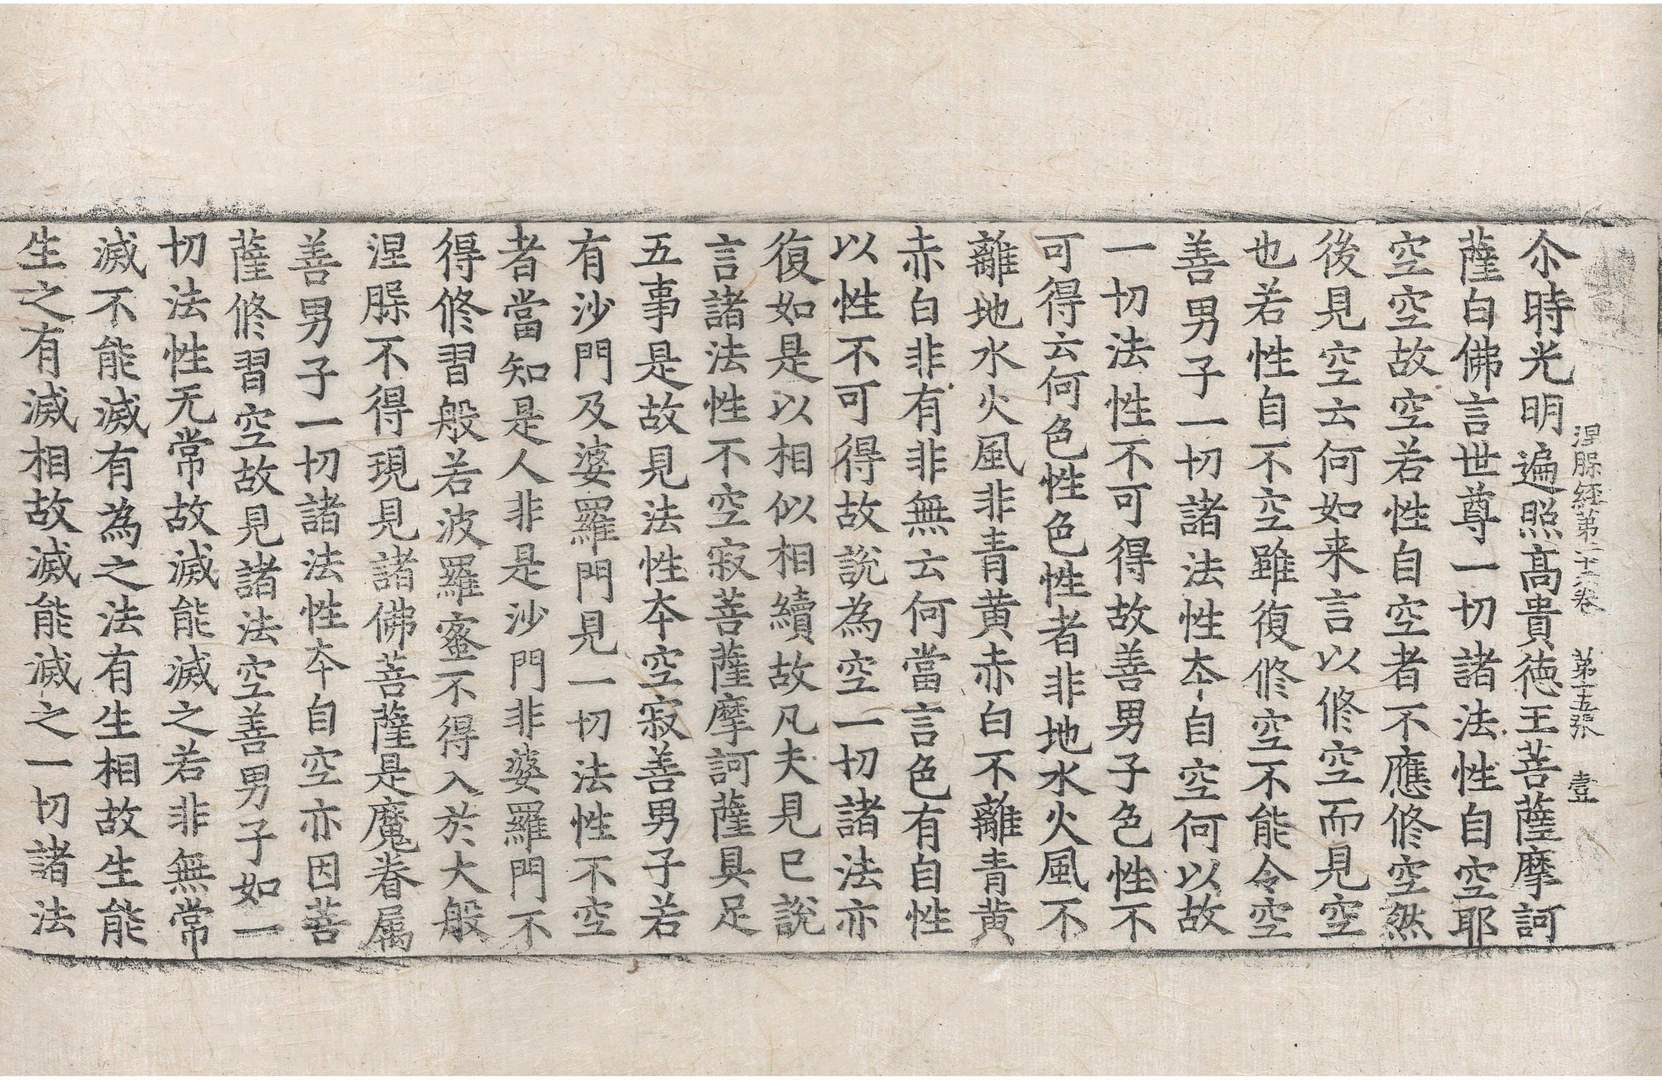 涅脲経第二十六卷　第十五張　壹
尒時光明遍照髙貴徳王菩薩摩訶
薩白佛言世尊一切諸法性自空耶
空空故空若性自空者不應修空然
後見空云何如来言以修空而見空
也若性自不空雖復修空不能令空
善男子一切諸法性本自空何以故
一切法性不可得故善男子色性不
可得云何色性色性者非地水火風不
離地水火風非青黄赤白不離青黄
赤白非有非無云何當言色有自性
以性不可得故說為空一切諸法亦
復如是以相似相續故凡夫見已說
言諸法性不空寂菩薩摩訶薩具足
五事是故見法性本空寂善男子若
有沙門及婆羅門見一切法性不空
者當知是人非是沙門非婆羅門不
得修習般若波羅蜜不得入於大般
涅脲不得現見諸佛菩薩是魔眷属
善男子一切諸法性本自空亦因菩
薩修習空故見諸法空善男子如一
切法性无常故滅能滅之若非無常
滅不能滅有為之法有生相故生能
生之有滅相故滅能滅之一切諸法